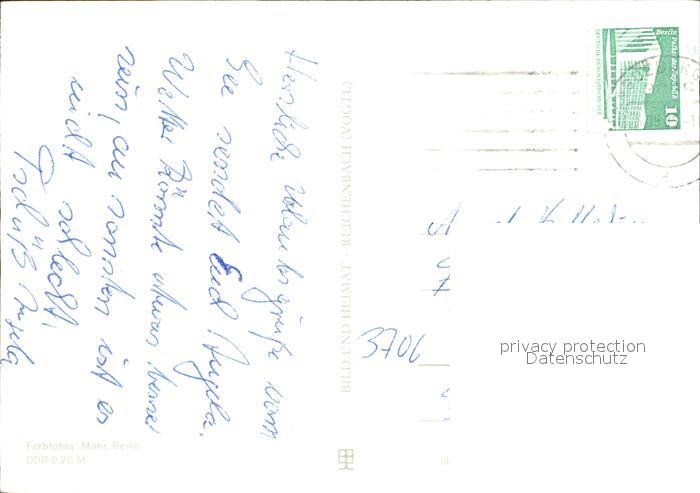 Herzliche Urlaubsgrüße vom
See sendet Euch Angela.
Wetter könnte etwas besser
sein, ansonsten ist es
nicht schlecht.
Tschüß Angela
BILD UND HEIMAT · REICHENBACH (VOGTL)
Berlin Palast der Republik
DEUTSCHE DEMOKRATISCHE REPUBLIK
10
3706
privacy protection
Datenschutz
Farbfotos: Mohr, Berlin
DDR 0,20 M